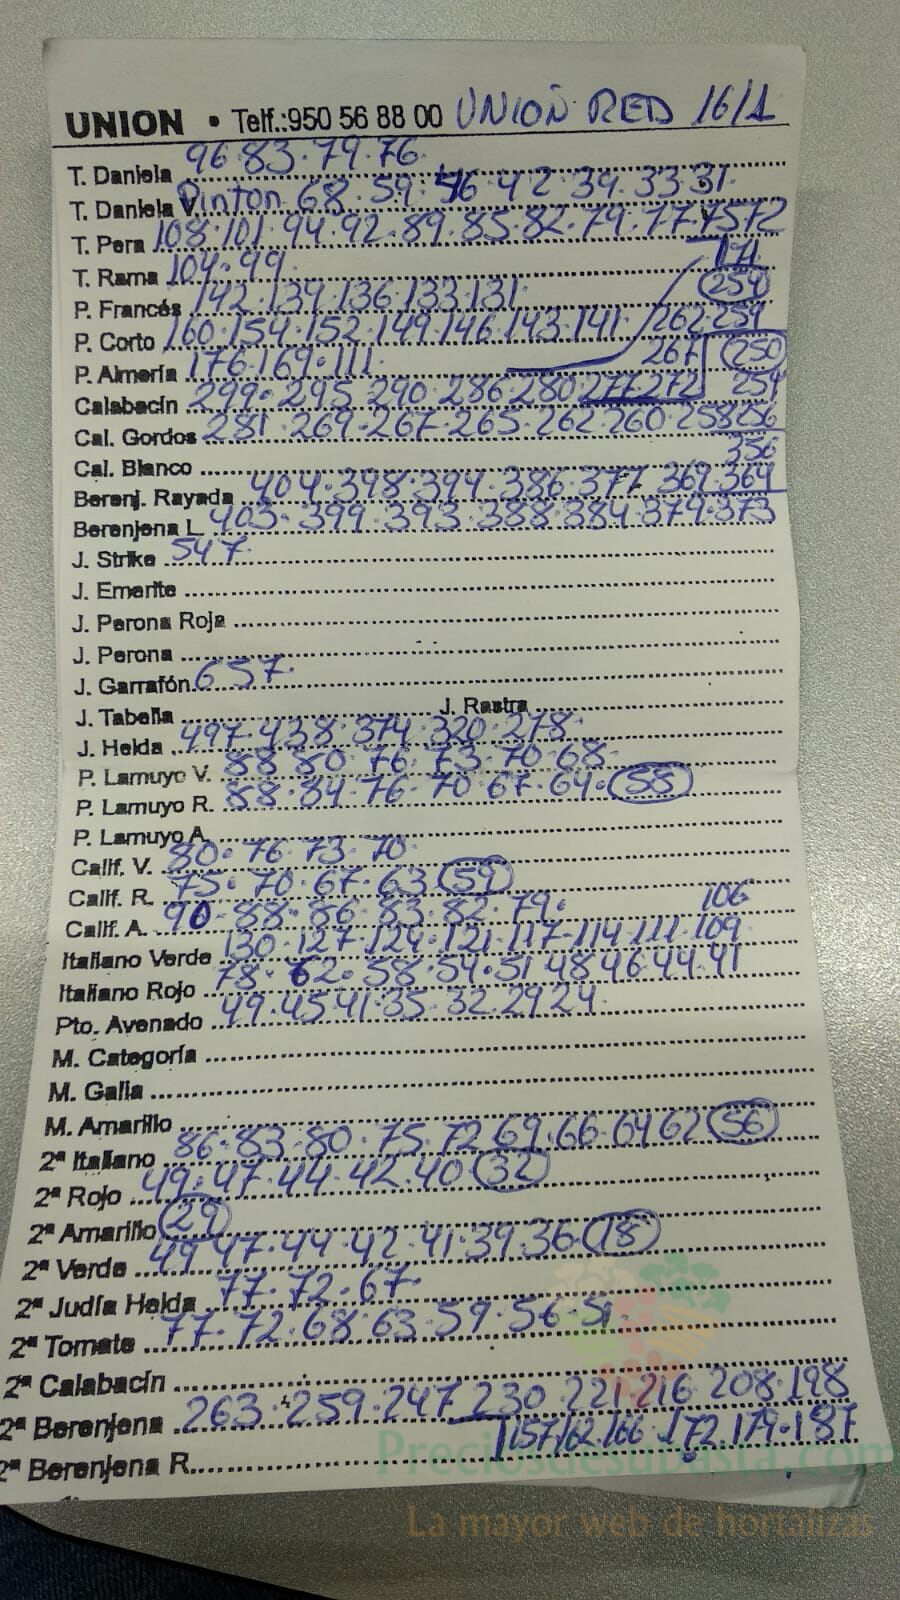 UNION • Telf.:950 56 88 00 UNION RED 16/1
T. Daniela 96.83.79.76.
T. Daniela V. Pinton 68.59.56.42.39.33.31.
T. Pera 108.101.94.92.89.85.82.79.77.75.72
T. Rama 104.99. 171
P. Francés 142.139.136.133.131. 254
P. Corto 160.154.152.149.146.143.141 262.259
P. Almería 176.169.111. 267 250
Calabacín 299.295.290.286.280.277.272 254
Cal. Gordos 281.269.267.265.262.260.258.256
Cal. Blanco 356
Berenj. Rayada 404.398.394.386.377.369.364
Berenjena L 403.399.393.388.384.379.373
J. Strike 547.
J. Emerite
J. Perona Roja
J. Perona
J. Garrafón 657.
J. Tabella J. Rastra
J. Helda 497.438.374.320.278.
P. Lamuyo V. 88.80.76.73.70.68.
P. Lamuyo R. 88.84.76.70.67.64.58
P. Lamuyo A.
Calif. V. 80.76.73.70.
Calif. R. 75.70.67.63.59
Calif. A. 90.88.86.83.82.79. 106
Italiano Verde 130.127.124.121.117.114.111.109
Italiano Rojo 78.62.58.54.51.48.46.44.41
Pto. Avenado 49.45.41.35.32.29.24.
M. Categoría
M. Galia
M. Amarillo
2ª Italiano 86.83.80.75.72.69.66.64.62 56
2ª Rojo 49.47.44.42.40 32
2ª Amarillo 29
2ª Verde 49.47.44.42.41.39.36 18
2ª Judía Helda 77.72.67.
2ª Tomate 77.72.68.63.59.56.51.
2ª Calabacín
2ª Berenjena 263.259.247.230.221.216.208.198
2ª Berenjena R. 157.162.166.172.179.187
Preciosdesubasta.com
La mayor web de hortalizas